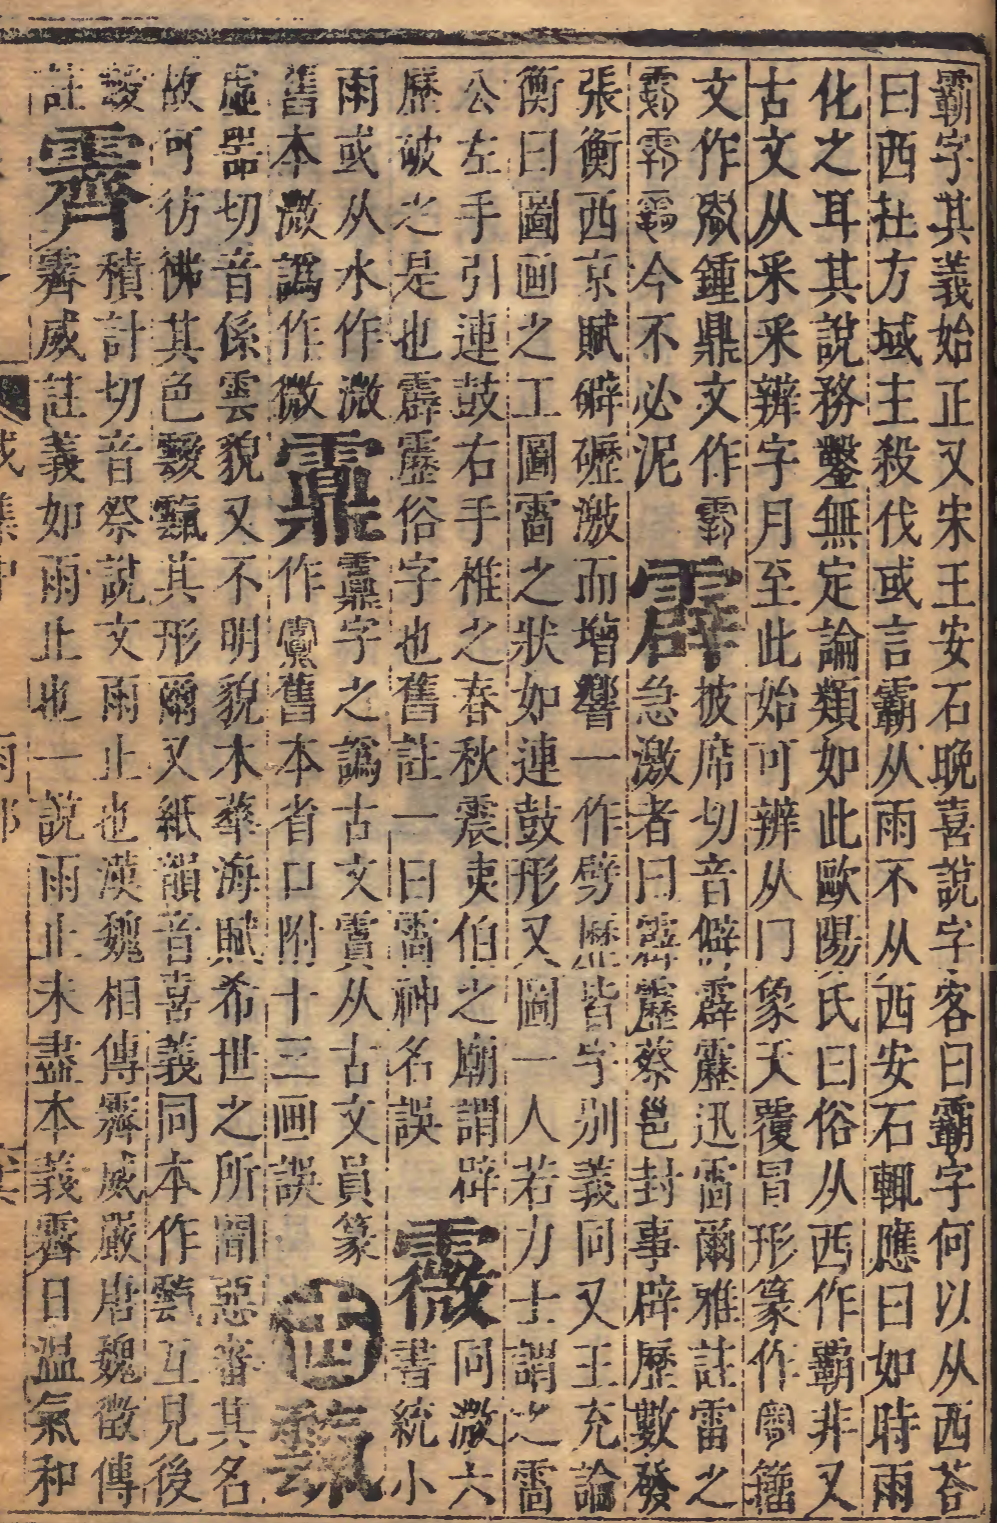 霸字其義始正又宋王安石晚喜說字客曰霸字何以从西荅
曰西社方域主殺伐或言霸从雨不从西安石輒應曰如時雨
化之耳其說務鑿無定論類如此歐陽氏曰俗从西作覇非又
古文从釆釆辨字月至此始可辨从冂象天覆冒形篆作籒
文作鍾鼎文作
今不必泥
霹
披席切音僻霹靂迅雷爾雅註雷之
急激者曰霹靂蔡邕封事辟歷數發
張衡西京賦礔礰激而增響一作劈歷皆字別義同又王充論
衡曰圖画之工圖雷之狀如連鼓形又圖一人若力士謂之雷
公左手引連鼓右手椎之春秋震夷伯之廟謂辟
歷破之是也霹靂俗字也舊註一曰雷神名誤
霺
同溦六
書統小
雨或从水作溦
舊本溦譌作微
字之譌古文霣从古文員篆
作舊本省口附十三画誤
十四
靅
虛器切音係雲貌又不明貌木華海賦希世之所聞惡審其名
故可彷彿其色靉靅其形爾又紙韻音喜義同本作靅互見後
靉
註
霽
積計切音祭說文雨止也漢魏相傳霽威嚴唐魏徵傳
霽威註義如雨止也一說雨止未盡本義霽日溫氣和